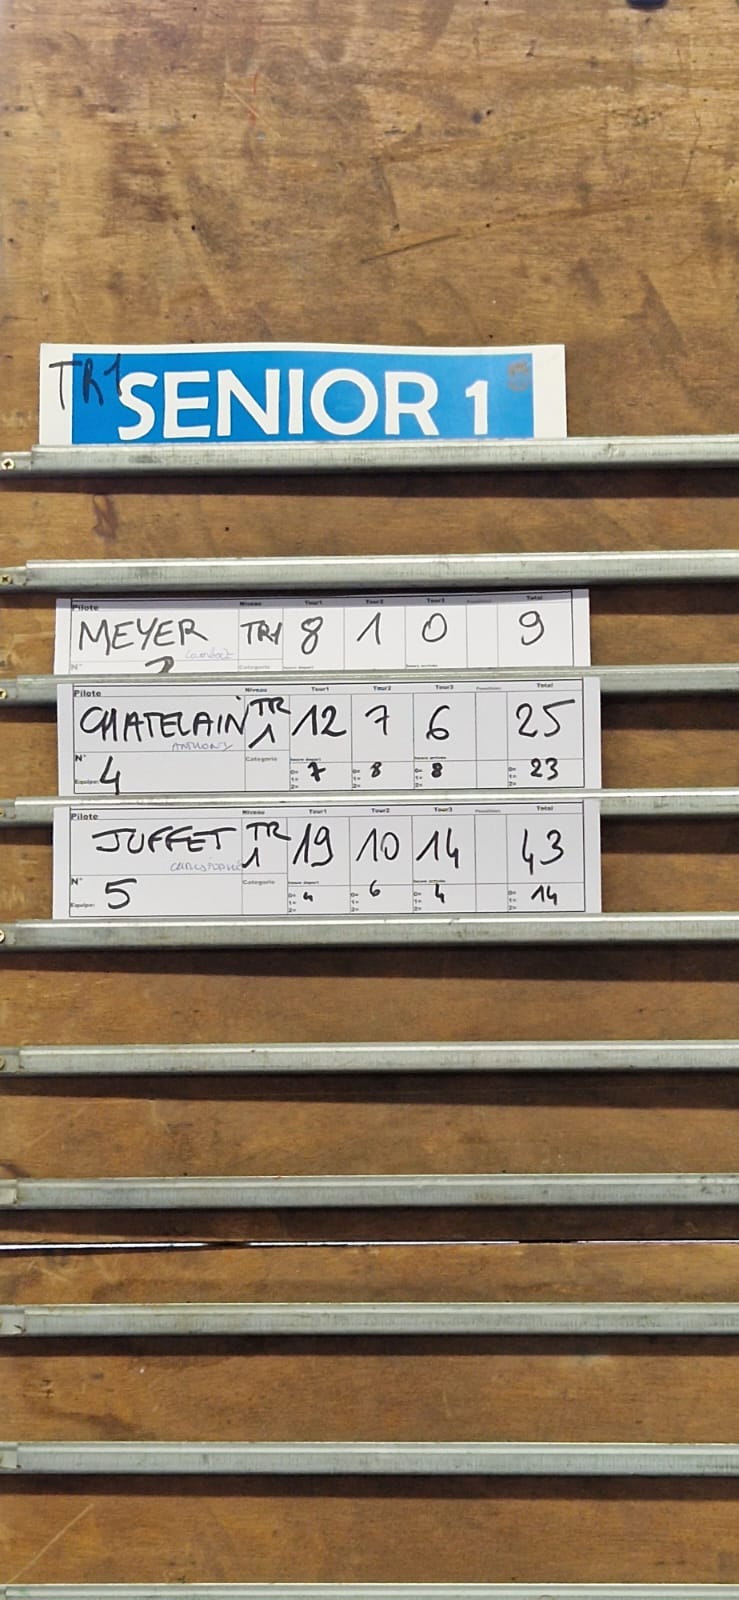 TR1 SENIOR 1
Pilote Niveau Tour1 Tour2 Tour3 Total
MEYER TR1 8 1 0 9
N° Catégorie
Pilote Niveau Tour1 Tour2 Tour3 Pénalités Total
CHATELAIN TR 1 12 7 6 25
ANTHONY
N° 4 Catégorie 0= 7 0= 8 0= 8 0= 23
Equipe: 1= 1= 1= 1=
2= 2= 2= 2=
Pilote Niveau Tour1 Tour2 Tour3 Pénalités Total
JUFFET TR 1 19 10 14 43
CHRISTOPHE
N° 5 Catégorie 0= 4 0= 6 0= 4 0= 14
Equipe: 1= 1= 1= 1=
2= 2= 2= 2=